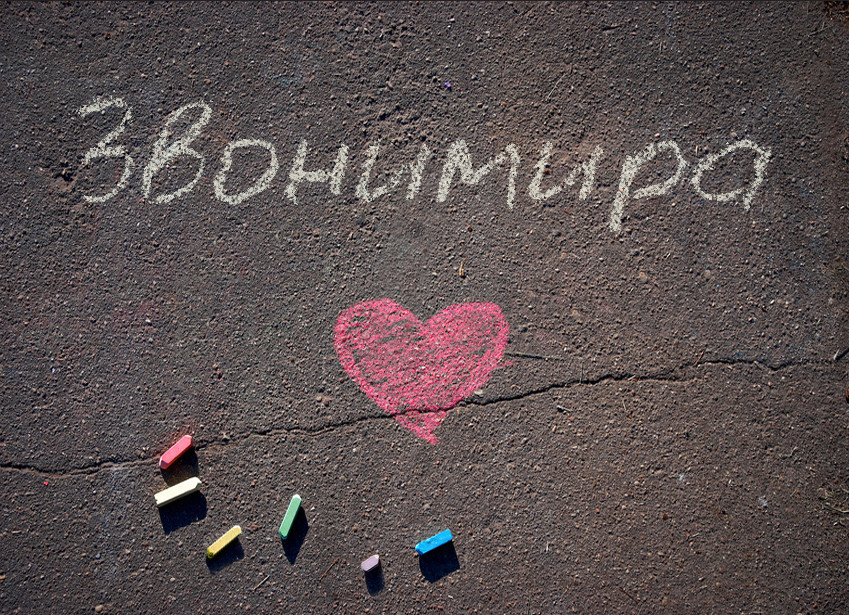 Звонимира